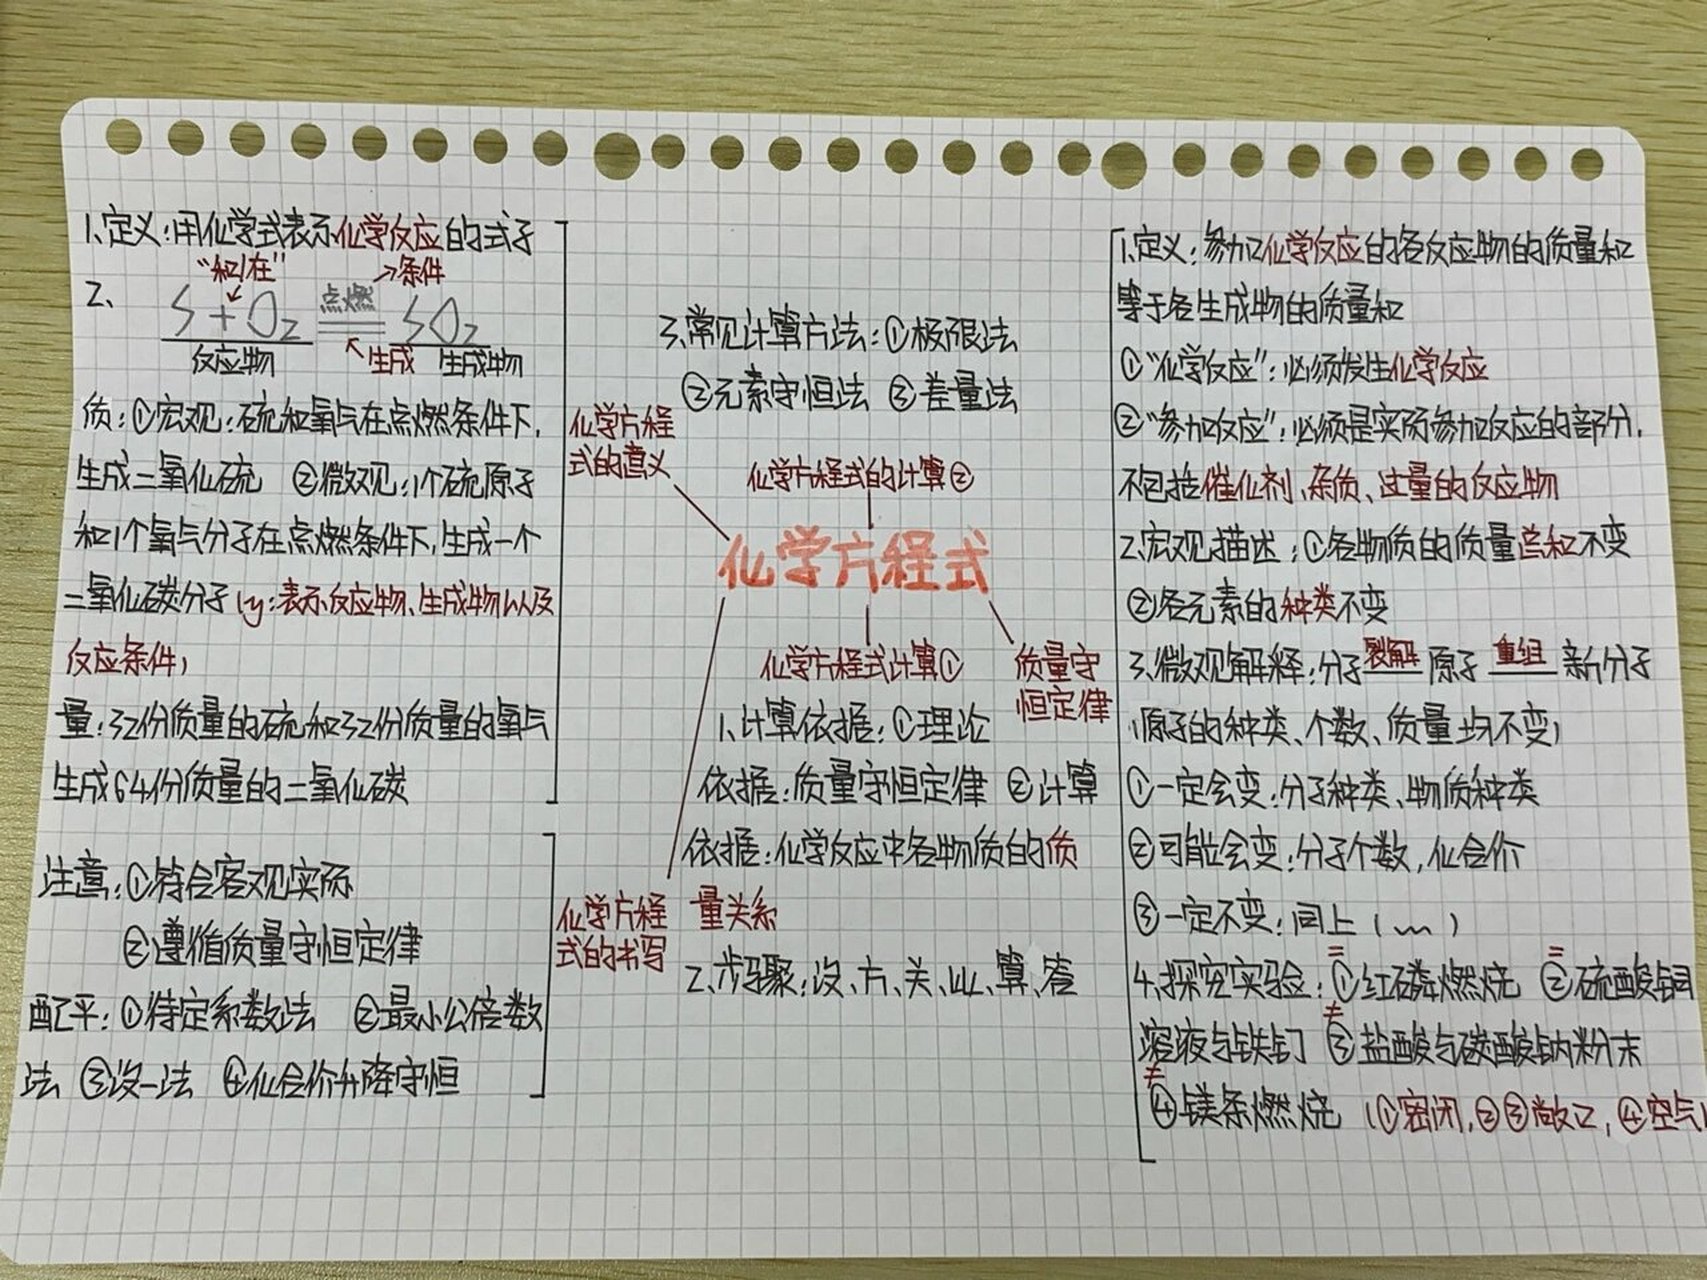 1、定义：用化学式表示化学反应的式子
“和/在” →条件
2、 S + O₂ 点燃 SO₂
反应物 生成 生成物
质：①宏观：硫和氧气在点燃条件下，
生成二氧化硫 ②微观：1个硫原子
和1个氧气分子在点燃条件下，生成一个
二氧化碳分子（y：表示反应物、生成物以及
反应条件）
量：32份质量的硫和32份质量的氧气
生成64份质量的二氧化碳
化学方程
式的意义
注意：①符合客观实际
②遵循质量守恒定律
配平：①待定系数法 ②最小公倍数
法 ③设一法 ④化合价升降守恒
化学方程
式的书写
3、常见计算方法：①极限法
②元素守恒法 ③差量法
化学方程式的计算②
化学方程式
化学方程式计算①
1、计算依据：①理论
依据：质量守恒定律 ②计算
依据：化学反应中各物质的质
量关系
2、步骤：设、方、关、比、算、答
质量守
恒定律
1、定义：参加化学反应的各反应物的质量和
等于各生成物的质量和
①“化学反应”：必须发生化学反应
②“参加反应”：必须是实际参加反应的部分，
不包括催化剂、杂质、过量的反应物
2、宏观描述：①各物质的质量总和不变
②各元素的种类不变
3、微观解释：分子 裂解 原子 重组 新分子
（原子的种类、个数、质量均不变）
①一定会变：分子种类、物质种类
②可能会变：分子个数，化合价
③一定不变：同上（ ）
4、探究实验：=①红磷燃烧 =②硫酸铜
溶液与铁钉 ≠③盐酸与碳酸钠粉末
≠④镁条燃烧（①密闭，②③敞口，④空气）